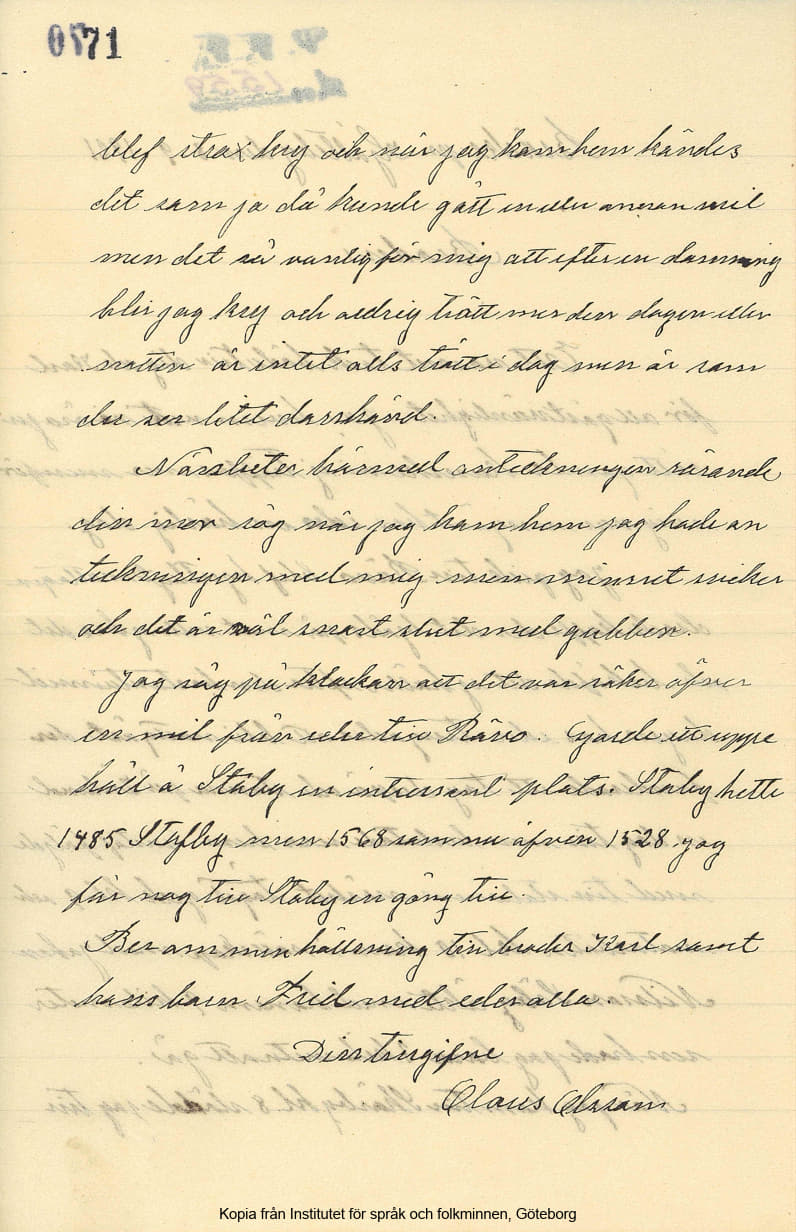 0771
V. F. F.
1559
blef strax kry och när jag kom hem kändes
det som ja då kunde gått en eller annan mil
men det så vanlig för mig att efter en damning
blir jag kry och aldrig trött mer den dagen eller
natten är intet alls trött i dag men är som
du ser litet darrhänd.
Närsluter härmed anteckningen rörande
din mor såg när jag kom hem jag hade an
teckningen med mig men minnet sviker
och det är väl snart slut med gubben.
Jag såg på klockan att det var säker öfver
en mil från eder till Rävo. Gorde ett uppe
håll å Ståby en intressant plats. Staby hette
1485 Stafby men 1568 som nu äfven 1528. jag
får nog till Staby en gång till.
Ber om min hälsning till broder Karl samt
hans barn. Frid med eder alla.
Din tillgifne
Claus Olsson
Kopia från Institutet för språk och folkminnen, Göteborg